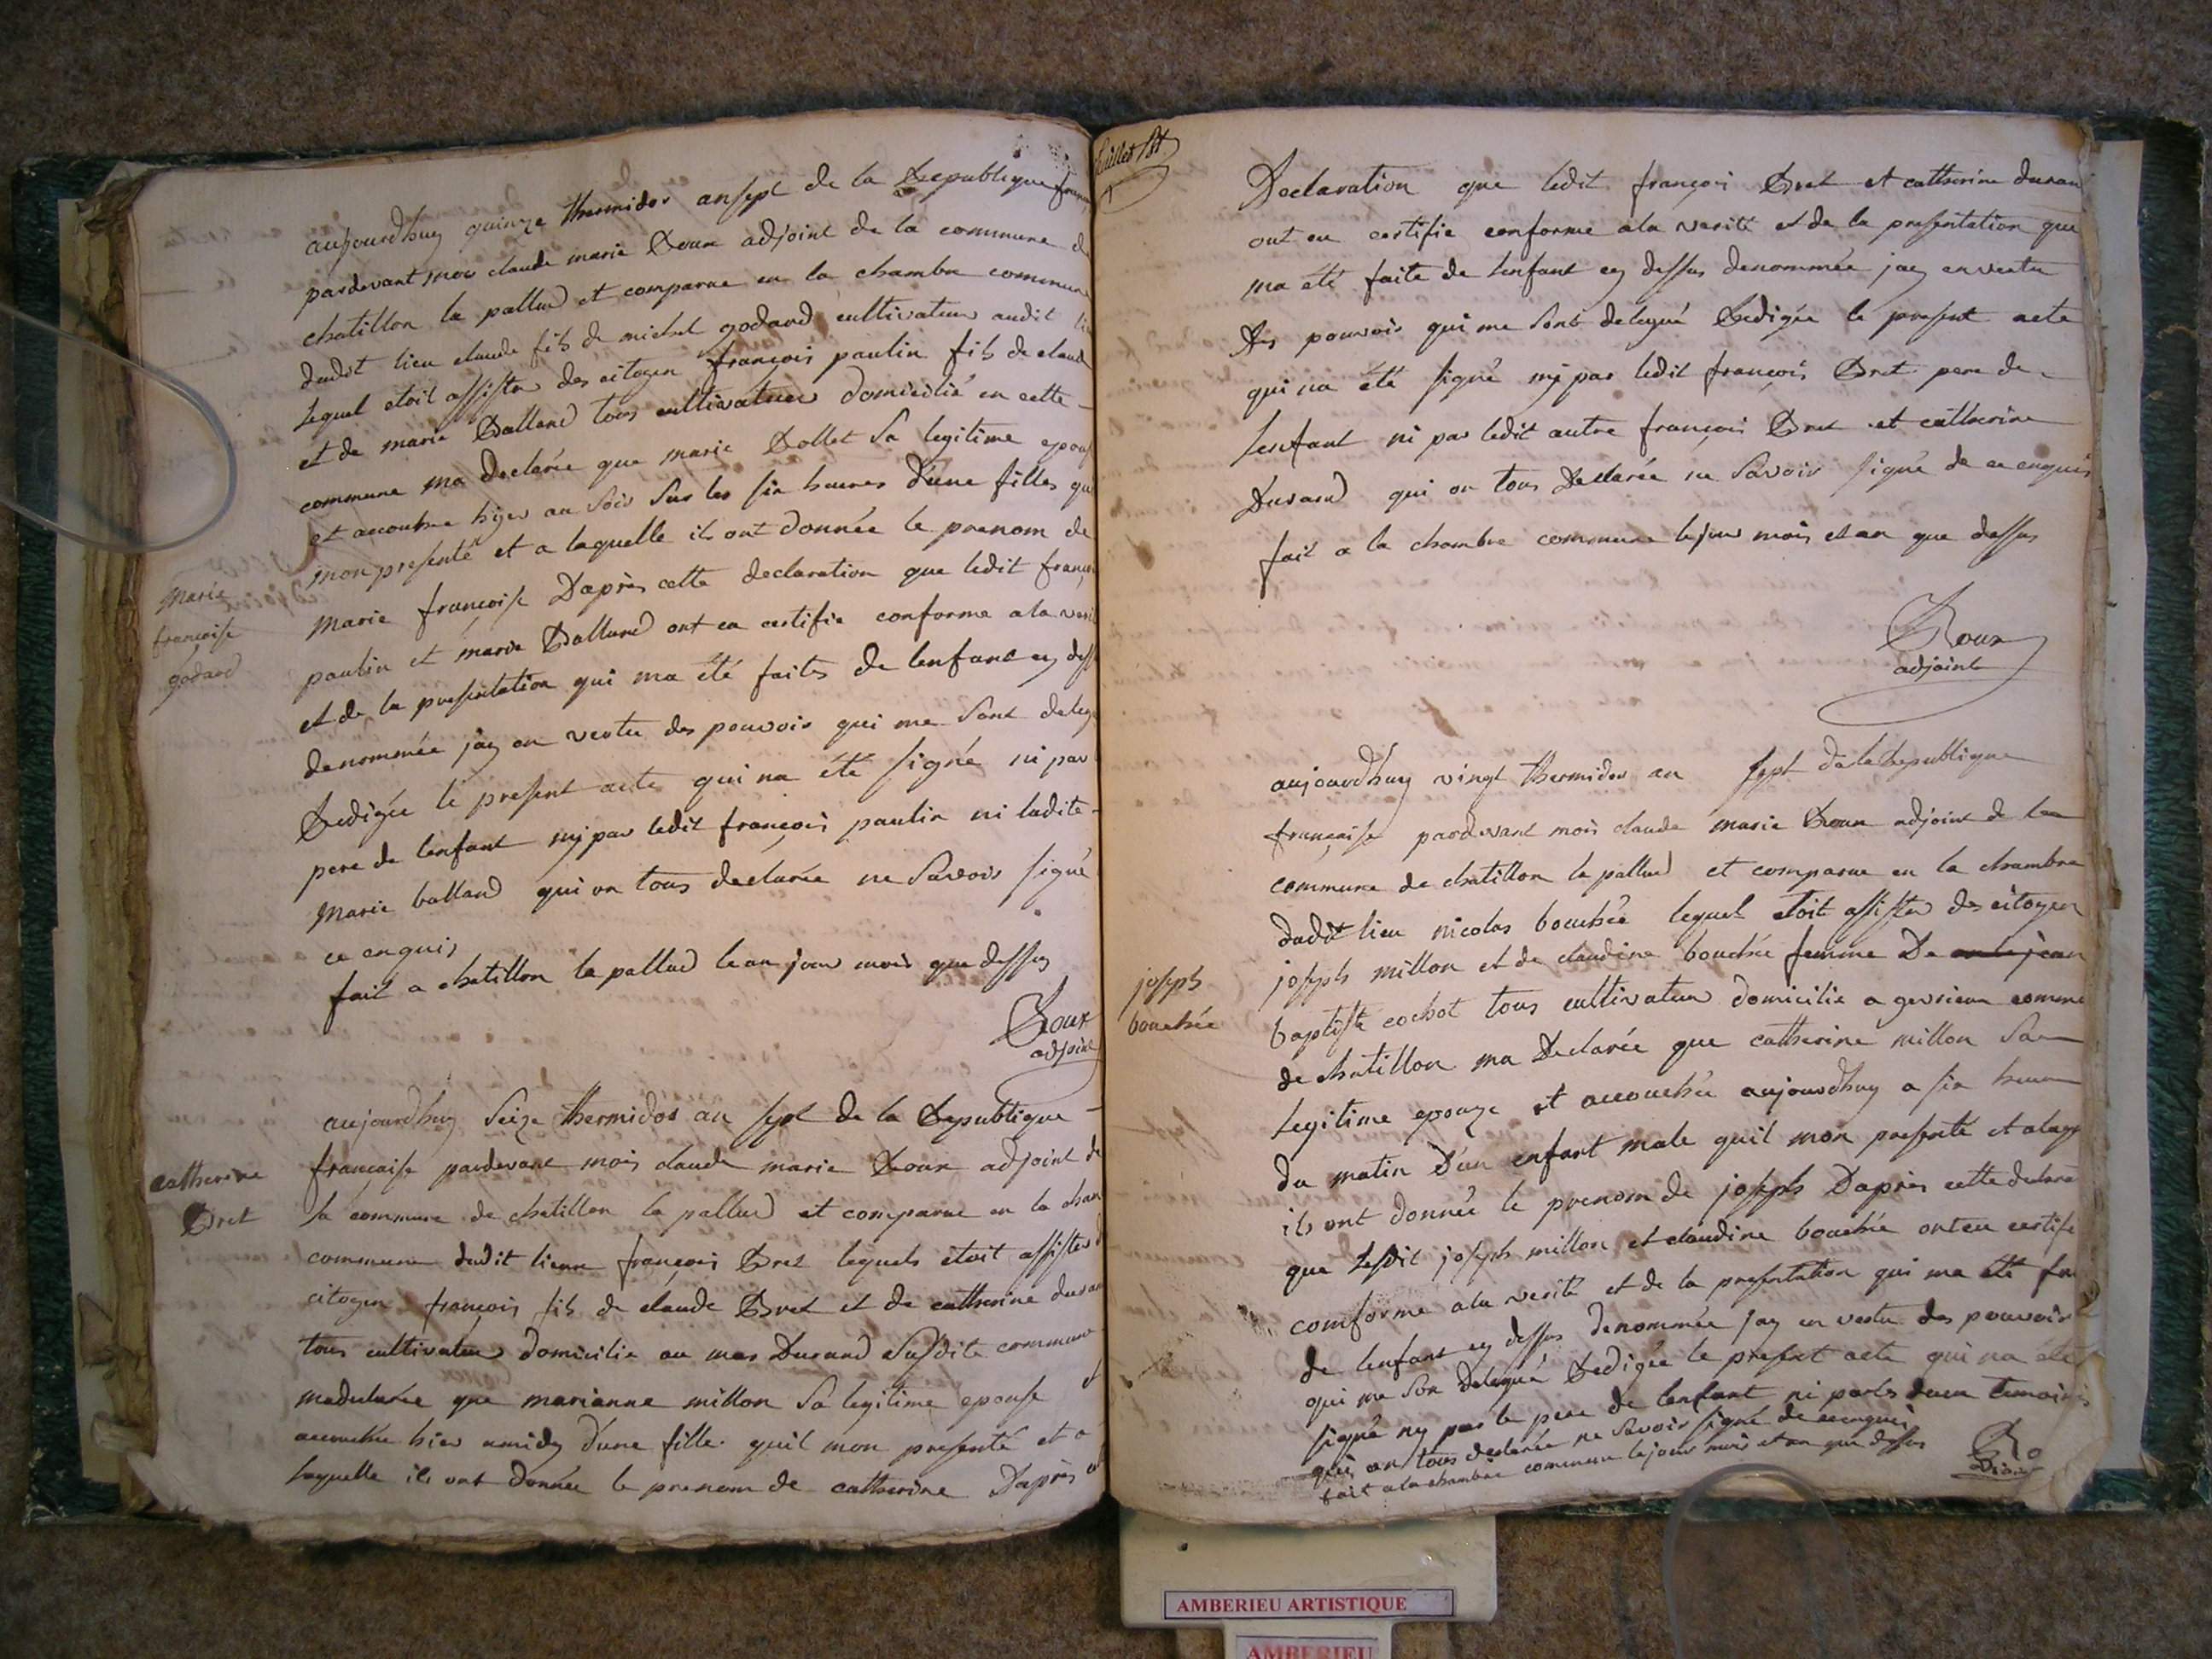 aujourdhuy quinze thermidor an sept de la Republique
pardevant moy claude marie Roux adjoint de la commune d
chatillon la pallud et comparue en la chambre commune
dudit lieu claude fils de michel godard cultivateur audit
Lequel etoit assister des citoyen françois paulin fils de claud
et de marie Balland tous cultivateur domicilié en cette
commune ma declarée que marie Bollet Sa legitime epous
et accouhee hyer au Soir Sur les six heures d'une filles qu
mon presenté et a laquelle ils ont donnée le prenom de
Marie
françoise
godard
Marie françoise Daprès cette declaration que ledit franço
paulin et marie Balland ont en certifie conforme a la veri
et de la presentation qui ma été faites de lenfant cy dess
denommée jay en vertu des pouvoir qui me Sont deleg
Redigée le present acte qui na été signé ni par
pere de lenfant ny par ledit françois paulin ni ladite
Marie balland qui on tous declarée ne Savoir signé
ce enquis
fait a chatillon la pallud le an jour mois que dessus
Roux
adjoint
catherine
Bret
aujourdhuy Seize thermidor an sept de la Republique
française pardevant mois claude marie Roux adjoint de
la commune de chatillon la pallud et comparue en la cham
commune dudit lieux françois Bret lequels etoit assister d
citoyen françois fils de claude Bret et de catherine duran
tous cultivateur domicilie au mas Durand Susdite commune
madeclarée que marianne millon Sa legitime epouse
accouchee hier amidy d'une fille quil mon presenté et a
laquelle ils ont donnée le prenom de catherine Daprès
feuillet
Declaration que ledit françois Bret et catherine duran
ont en certifie conforme ala verité et de la presentation que
ma été faite de lenfant cy dessus denommée jay en vertu
des pouvoir qui me Sont delegué Redigée le present acte
qui na été signé ny par ledit françois Bret pere de
lenfant ni par ledit autre françois Bret et catherine
Durand qui on tous declarée ne Savoir signé de ce enquis
fait a la chambre commune le jour mois et an que dessus
Roux
adjoint
joseph
bouchée
aujourdhuy vingt thermidor an sept de la Republique
française pardevant mois claude marie Roux adjoint de la
commune de chatillon la pallud et comparue en la chambre
dudit lieu nicolas bouchée lequel etoit assister des citoyen
joseph millon et de claudine bouchée femme De jean
baptiste cochot tous cultivateur domicilie a gevrieux comme
de chatillon ma declarée que catherine millon Sa
legitime epouze et accouchée aujourdhuy a six heure
du matin d'un enfant male quil mon presenté et a laqu
ils ont donnée le prenom de joseph Daprès cette declara
que lesdit joseph millon et claudine bouchée onten certife
comforme ala verité et de la presentation qui ma été fai
de lenfant cy dessus denommée jay en vertu des pouvoir
qui me Son delegué Redigée le present acte qui na été
signé ny par le pere de lenfant ni par les deux temoins
qui on tous declarée ne Savoir signé de ce enquis
fait a la chambre commune le jour mois et an que dessus
AMBERIEU ARTISTIQUE
AMBERIEU